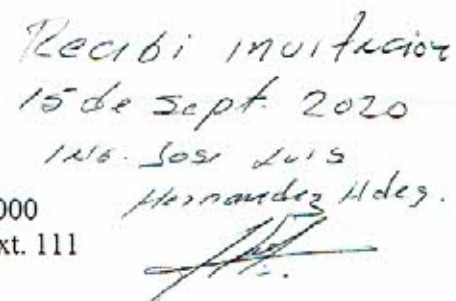 Recibi invitacion
15 de sept. 2020
ING. Jose Luis
Hernandez Hdez.
000
xt. 111